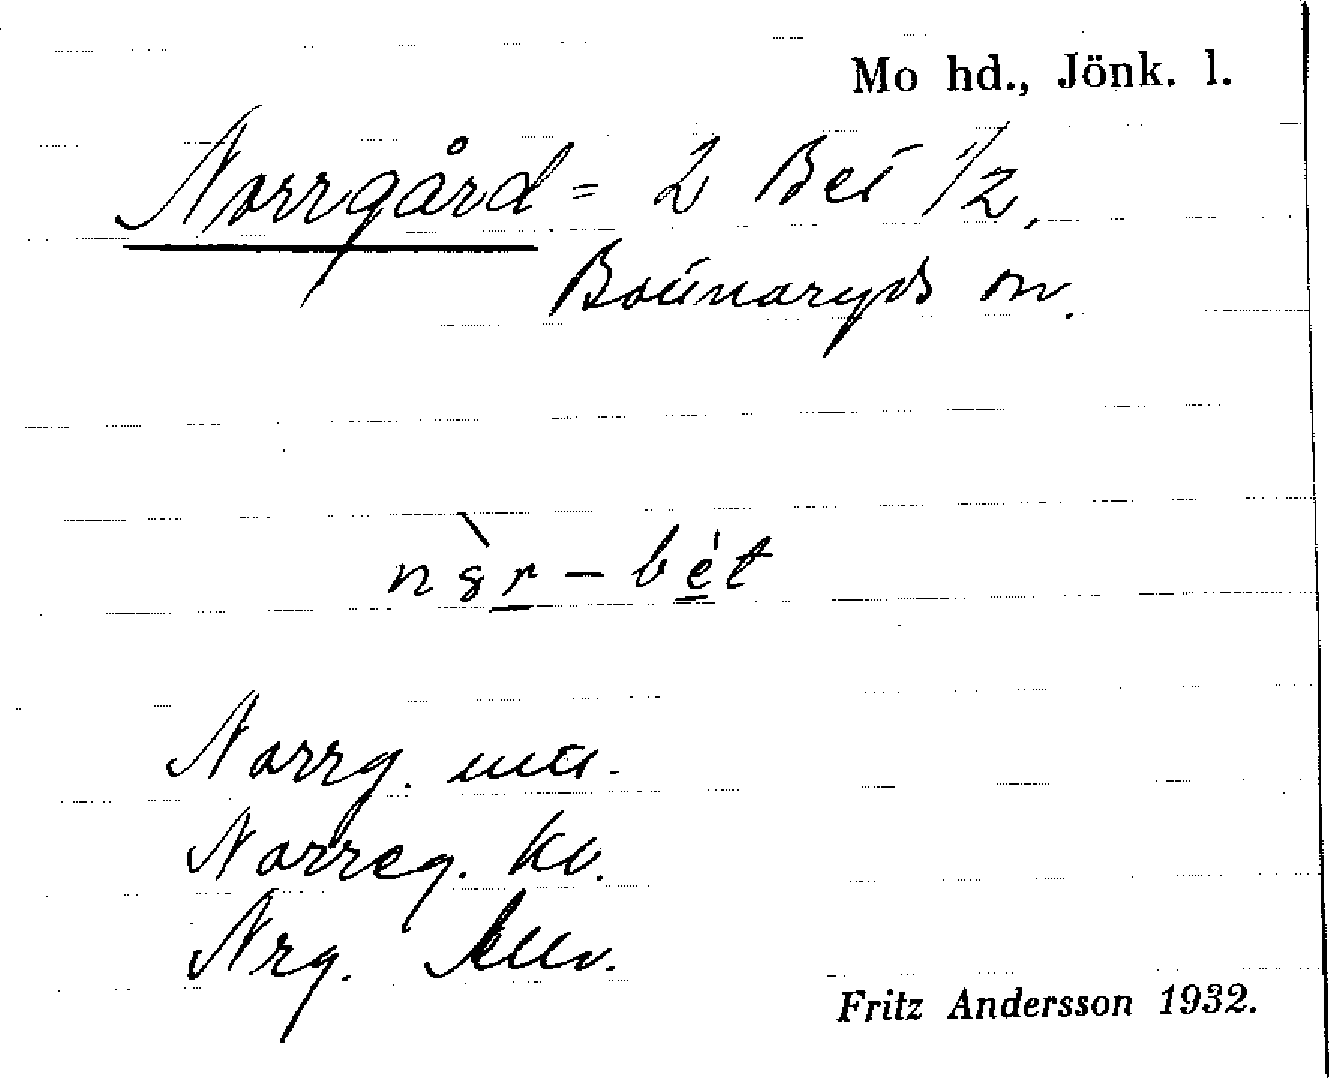 Mo hd., Jönk. l.
Norrgård = 2 Bet 1/2,
Bounaryds sn.
nȣ̀r – bét
Norrg. 
Norreg. kv.
Nrg.
Fritz Andersson 1932.